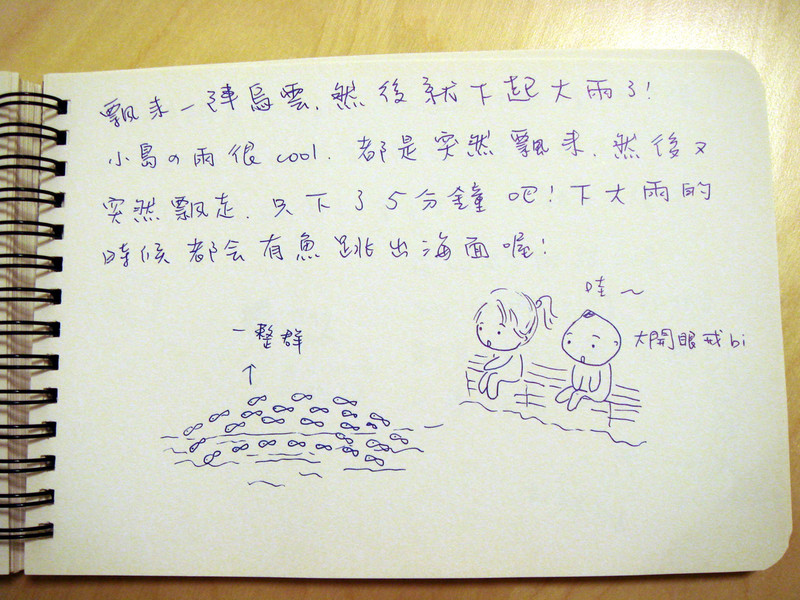 飄来一陣烏雲，然後就下起大雨了！
小島の雨很cool．都是突然飄来，然後又
突然飄走，只下了5分鐘吧！下大雨的
時候都会有魚跳出海面喔！
哇～
一整群
大開眼戒bi